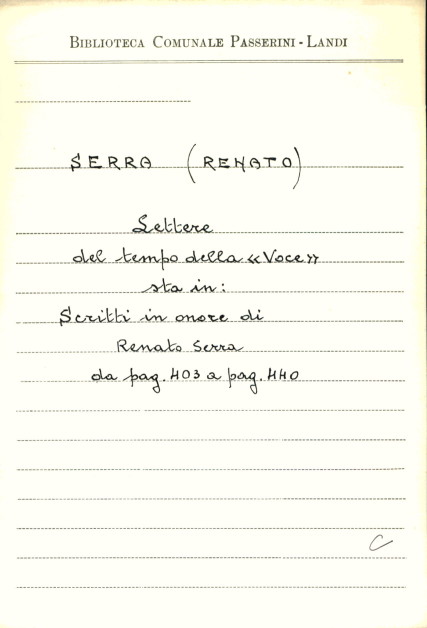 BIBLIOTECA COMUNALE PASSERINI - LANDI
SERRA (RENATO)
Lettere
del tempo della «Voce»
sta in:
Scritti in onore di
Renato Serra
da pag. 403 a pag. 440
C